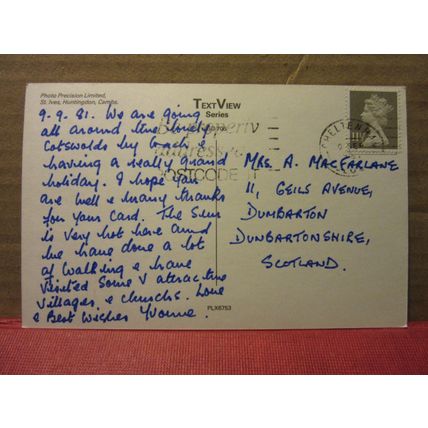 Photo Precision Limited,
St. Ives, Huntingdon, Cambs.
TEXTVIEW
Series
9.9.81. We are going
all around the lovely
Cotswolds by coach &
having a really grand
holiday. I hope you
are well & many thanks
for your card. The Sun
is very hot here and
we have done a lot
of walking & have
visited some v attractive
villages & churchs. Love
& Best Wishes Yvonne.
properly
address
POSTCODE
CHELTENHAM
MRS. A. MACFARLANE
11, GEILS AVENUE,
DUMBARTON
DUNBARTONSHIRE,
SCOTLAND.
PLX6753